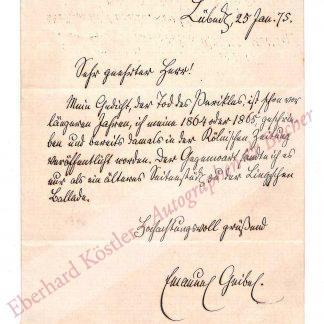 Lübeck, 25 Jan. 75.
Sehr geehrter Herr!
Mein Gedicht, der Tod des Perikles, ist schon vor
längeren Jahren, ich meine 1864 oder 1865 geschrie-
ben und bereits damals in der Kölnischen Zeitung
veröffentlicht worden. Der Gegenwart sandte ich es
nur als ein älteres Seitenstück zu der Lingg'schen
Ballade.
Hochachtungsvoll grüßend
Emanuel Geibel.
Eberhard Köstler Autographen & Bücher